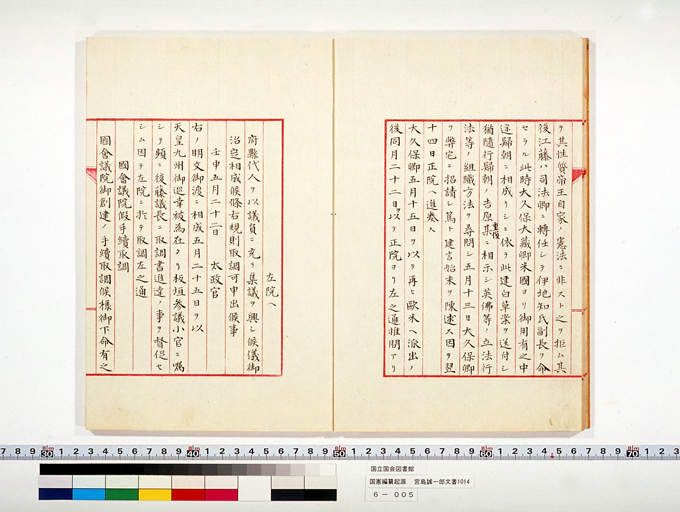 ヲ其性質帝王自家ノ憲法ニ非ストシテ之ヲ拒ム其
後江藤ハ司法卿ニ轉任シテ伊地知氏副長ヲ命
セラル此時大久保大藏卿米國ヨリ御用有之中
途歸朝ニ相成リシニ依テ此建白草案ヲ送付シ
猶隨行歸朝ノ吉原某ニ相示シ英佛等ノ立法行
重俊
法等ノ組織方法ヲ尋問シ五月十三日大久保卿
ヲ弊宅ニ招請シ篤ト建言始末ヲ陳述ス因テ翌
十四日正院ヘ進奏ス
大久保卿五月十五日ヲ以テ再ヒ歐米ヘ派出ノ
後同月二十二日ヲ以テ正院ヨリ左之通推問アリ
左院ヘ
府縣代人ヲ以議員ニ充テ集議ヲ興シ候儀御
治定相成候條右規則取調可申出候事
壬申五月二十二日 太政官
右ノ明文御渡ニ相成五月二十五日ヲ以
天皇九州御巡幸被為在タリ板垣参議小官ニ囑
シテ頻ニ後藤議長ニ取調書進達ノ事ヲ督促セ
シム因テ左院ニ於テ取調左之通
國會議院假手續取調
國會議院御創建ノ手續取調候様御下命有之
国立国会図書館
国憲編纂起源 宮島誠一郎文書1014
6－005